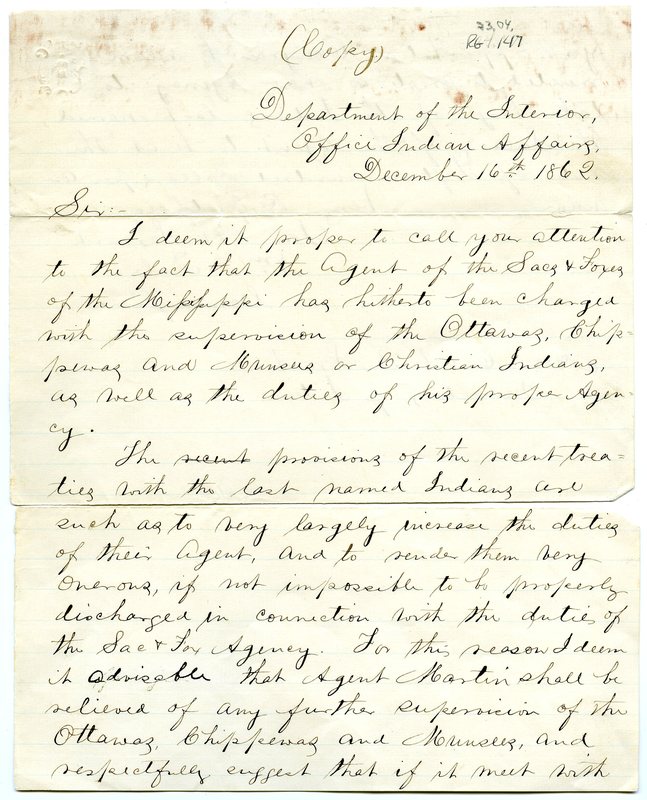 33.04.
RG1.147
(Copy)
Department of the Interior,
Office Indian Affairs,
December 16th 1862.
Sir:-
I deem it proper to call your attention
to the fact that the Agent of the Sacs & Foxes
of the Mississippi has hitherto been charged
with the supervision of the Ottawas, Chip=
pewas and Munsees or Christian Indians,
as well as the duties of his proper Agen-
cy.
The recent provisions of the recent trea=
ties with the last named Indians are
such as to very largely increase the duties
of their Agent, and to render them very
onerous, if not impossible to be properly
discharged in connection with the duties of
the Sac & Fox Agency. For this reason I deem
it advisable that Agent Martin shall be
relieved of any further supervision of the
Ottawas, Chippewas and Munsees, and
respectfully suggest that if it meet with